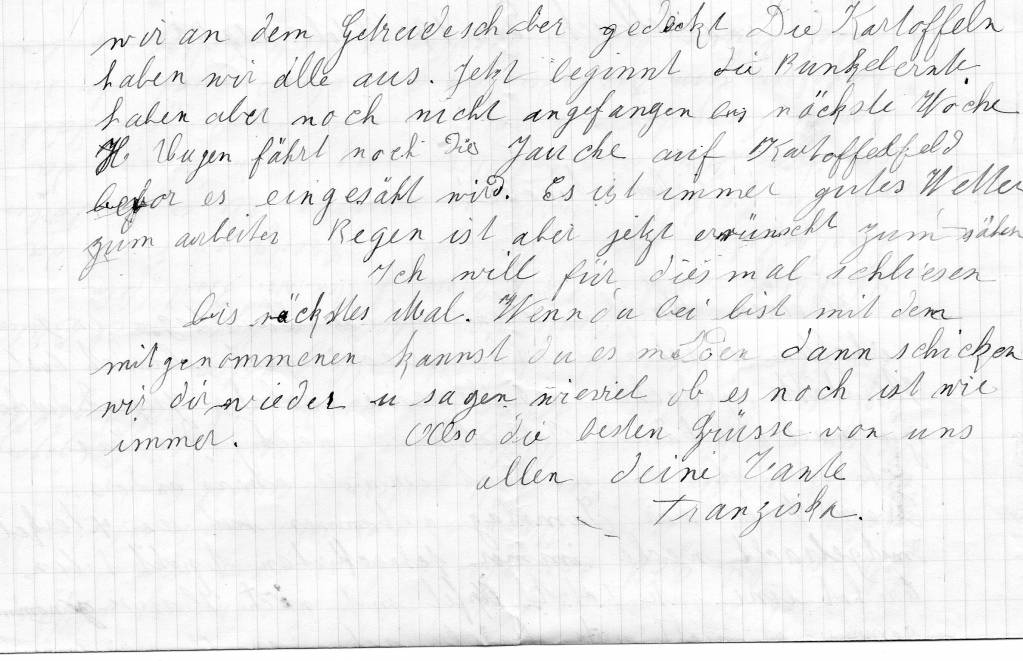 wir an dem Getreideschober gedeckt Die Kartoffeln
haben wir alle aus. Jetzt beginnt die Runkelernte
haben aber noch nicht angefangen bis näckste Woche
H Eugen fährt noch die Jauche auf Kartoffelfeld
bevor es eingesäht wird. Es ist immer gutes Wetter
zum arbeiten Regen ist aber jetzt erwünscht zum sähen
Ich will für diesmal schliesen
bis näckstes Mal. Wenn du bei bist mit dem
mitgenommenen kannst du es melden dann schicken
wir dir wieder u sagen wieviel ob es noch ist wie
immer. Also die besten Grüsse von uns
allen deine Tante
Franziska.